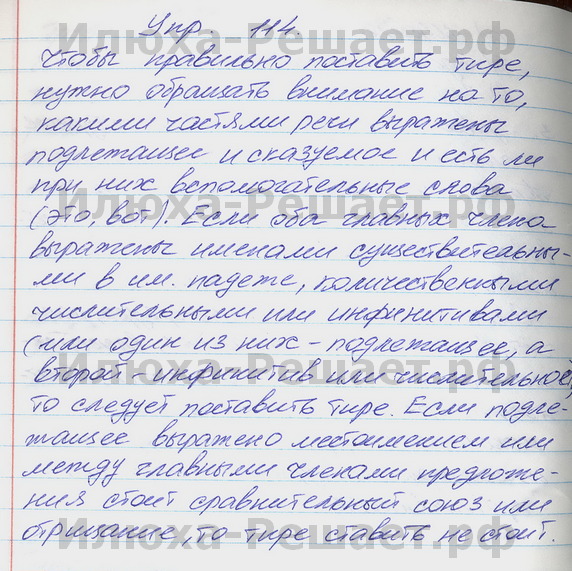 Упр. 114.
Чтобы правильно поставить тире,
нужно обращать внимание на то,
какими частями речи выражены
подлежащее и сказуемое и есть ли
при них вспомогательные слова
(это, вот). Если оба главных члена
выражены именами существительны-
ми в им. падеже, количественными
числительными или инфинитивами
(или один из них - подлежащее, а
второй - инфинитив или числительное),
то следует поставить тире. Если подле-
жащее выражено местоимением или
между главными членами предложе-
ния стоит сравнительный союз или
отрицание, то тире ставить не стоит.
Илюха-Решает.рф
Илюха-Решает.рф
Илюха-Решает.рф
Илюха-Решает.рф